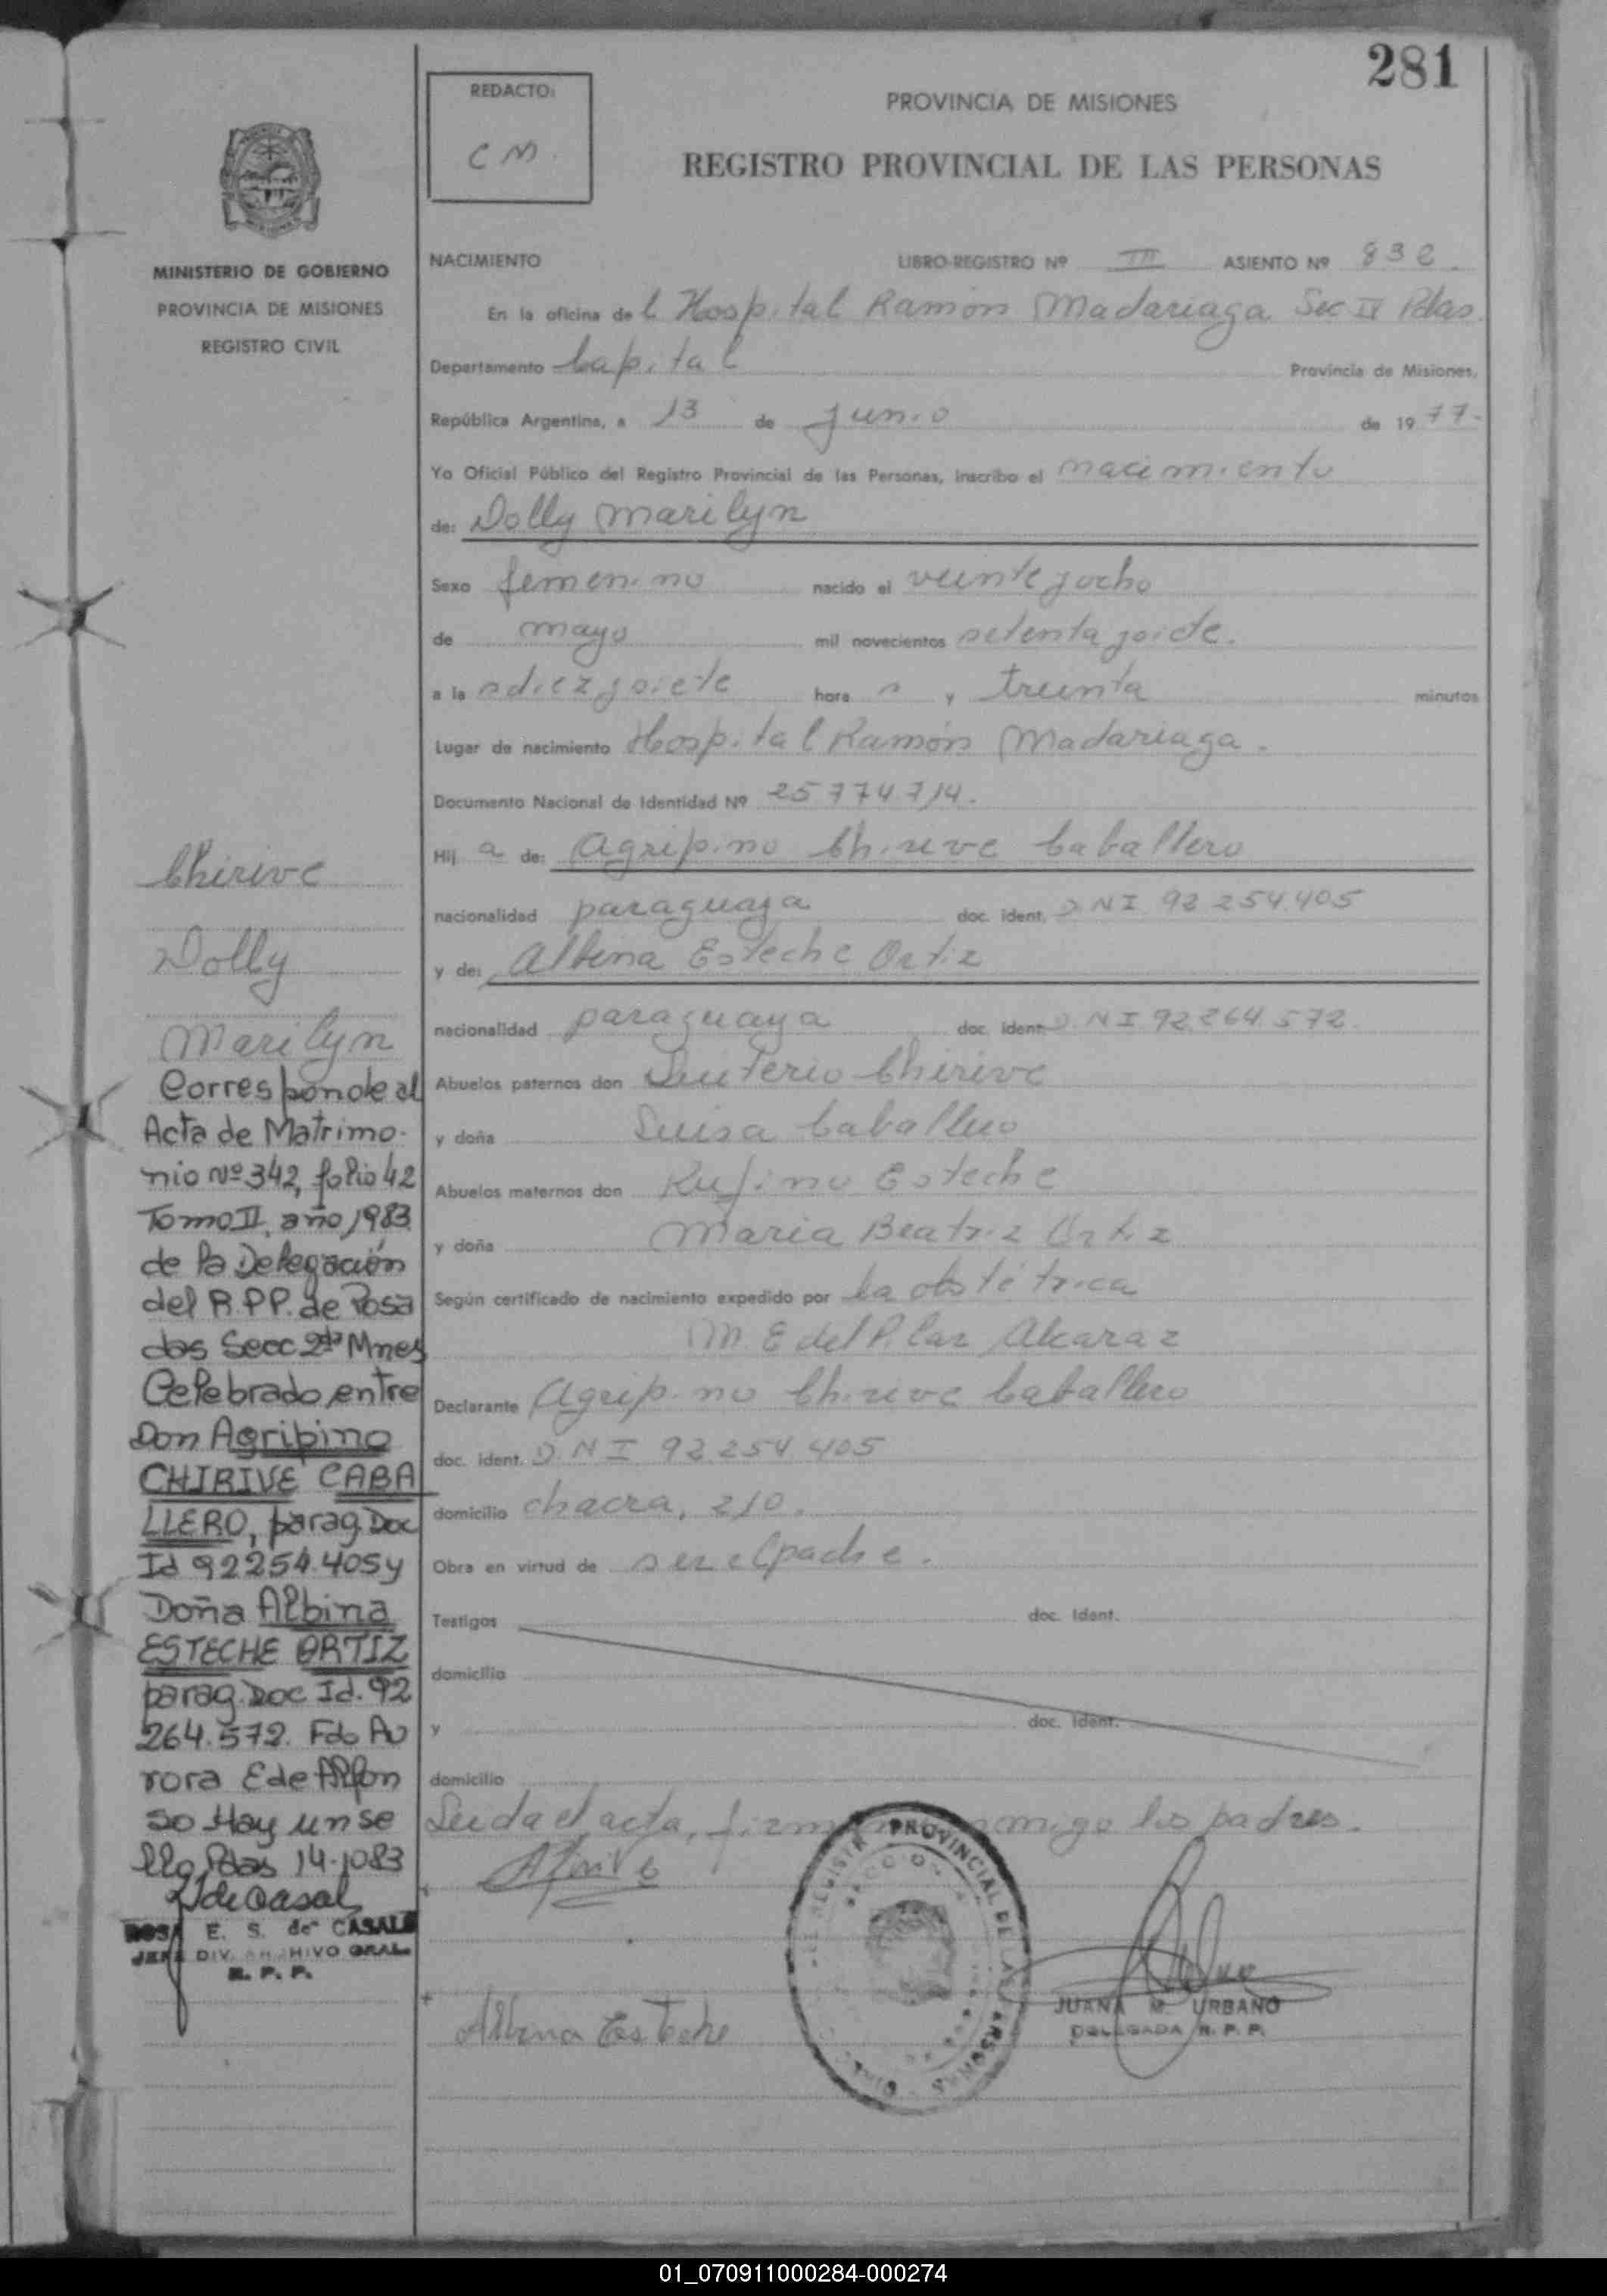 281
REDACTO:
CM.
PROVINCIA DE MISIONES
REGISTRO PROVINCIAL DE LAS PERSONAS
MINISTERIO DE GOBIERNO
PROVINCIA DE MISIONES
REGISTRO CIVIL
NACIMIENTO LIBRO-REGISTRO Nº III ASIENTO Nº 832
En la oficina del Hospital Ramón Madariaga Sec IV Pdas.
Departamento Capital Provincia de Misiones,
República Argentina, a 13 de junio de 1977.
Yo Oficial Público del Registro Provincial de las Personas, inscribo el nacimiento
de: Dolly Marilyn
Sexo femenino nacido el veinte y ocho
de mayo mil novecientos setenta y siete.
a las diez y siete horas y treinta minutos
Lugar de nacimiento Hospital Ramón Madariaga.
Documento Nacional de Identidad Nº 25.774.714.
Hija de: Agripino Chirive Caballero
nacionalidad paraguaya doc. ident. DNI 92.254.405
y de: Albina Esteche Ortiz
nacionalidad paraguaya doc. ident. D.N.I 92.264.572.
Abuelos paternos don Leuterio Chirive
y doña Luisa Caballero
Abuelos maternos don Rufino Esteche
y doña Maria Beatriz Ortiz
Según certificado de nacimiento expedido por la obstétrica
M. E del Pilar Alcaraz
Declarante Agripino Chirive Caballero
doc. ident. D.N.I 92.254.405
domicilio chacra, 210.
Obra en virtud de ser el padre.
Testigos doc. Ident.
domicilio
y doc. Ident.
domicilio
Leida el acta, firman conmigo los padres.
Albina Esteche
JUANA M. URBANO
DELEGADA R. P. P.
REGISTRO PROVINCIAL DE LAS PERSONAS
Chirive
Dolly
Marilyn
Corresponde al
Acta de Matrimo-
nio Nº 342, folio 42
Tomo II, año 1983
de la Delegación
del R.P.P. de Posa
das Secc 2da Mnes
Celebrado entre
Don Agripino
CHIRIVE CABA
LLERO, parag. Doc
Id 92254.405 y
Doña Albina
ESTECHE ORTIZ
parag. Doc Id. 92
264.572. Fdo Au
rora E de Alfon
so Hay un se
llo, Pdas 14-10 83
R de Casal
ROSA E. S. de CASALS
JEFE DIV. ARCHIVO GRAL.
R. P. P.
01_070911000284-000274